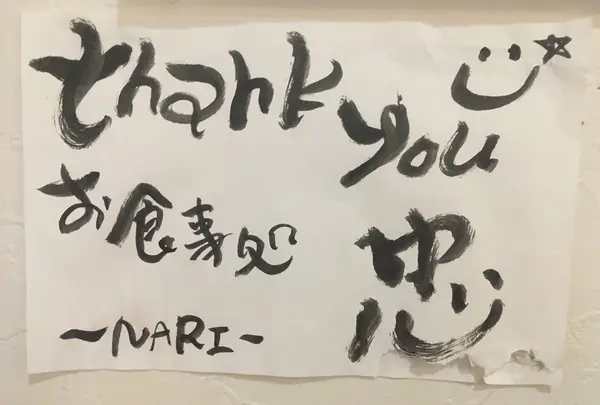 thank you
お食事処
忠
~NARI~